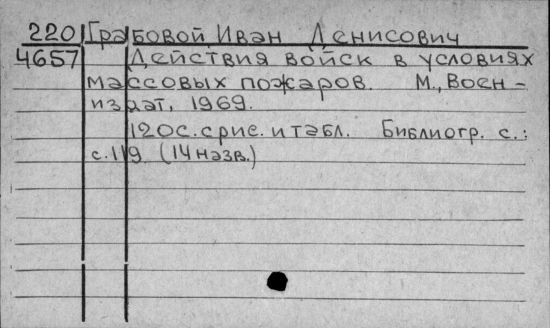 220 Грабовой Иван Денисович
4657 Действия войск в условиях
массовых пожаров. М., Воен-
издат, 1969.
120с. с рис. и табл. Библиогр. с.:
с.119 (14 назв.)